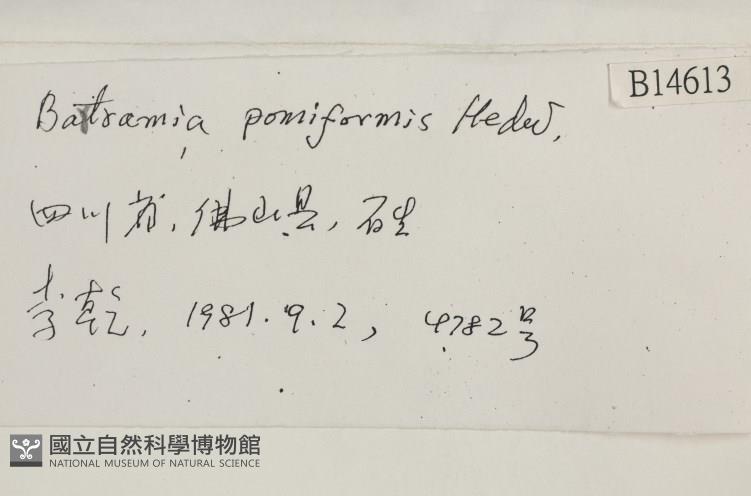 B14613
Bartramia pomiformis Hedw.
四川省, 佛山县, 石生
李乾, 1981.9.2, 4782号
國立自然科學博物館
NATIONAL MUSEUM OF NATURAL SCIENCE